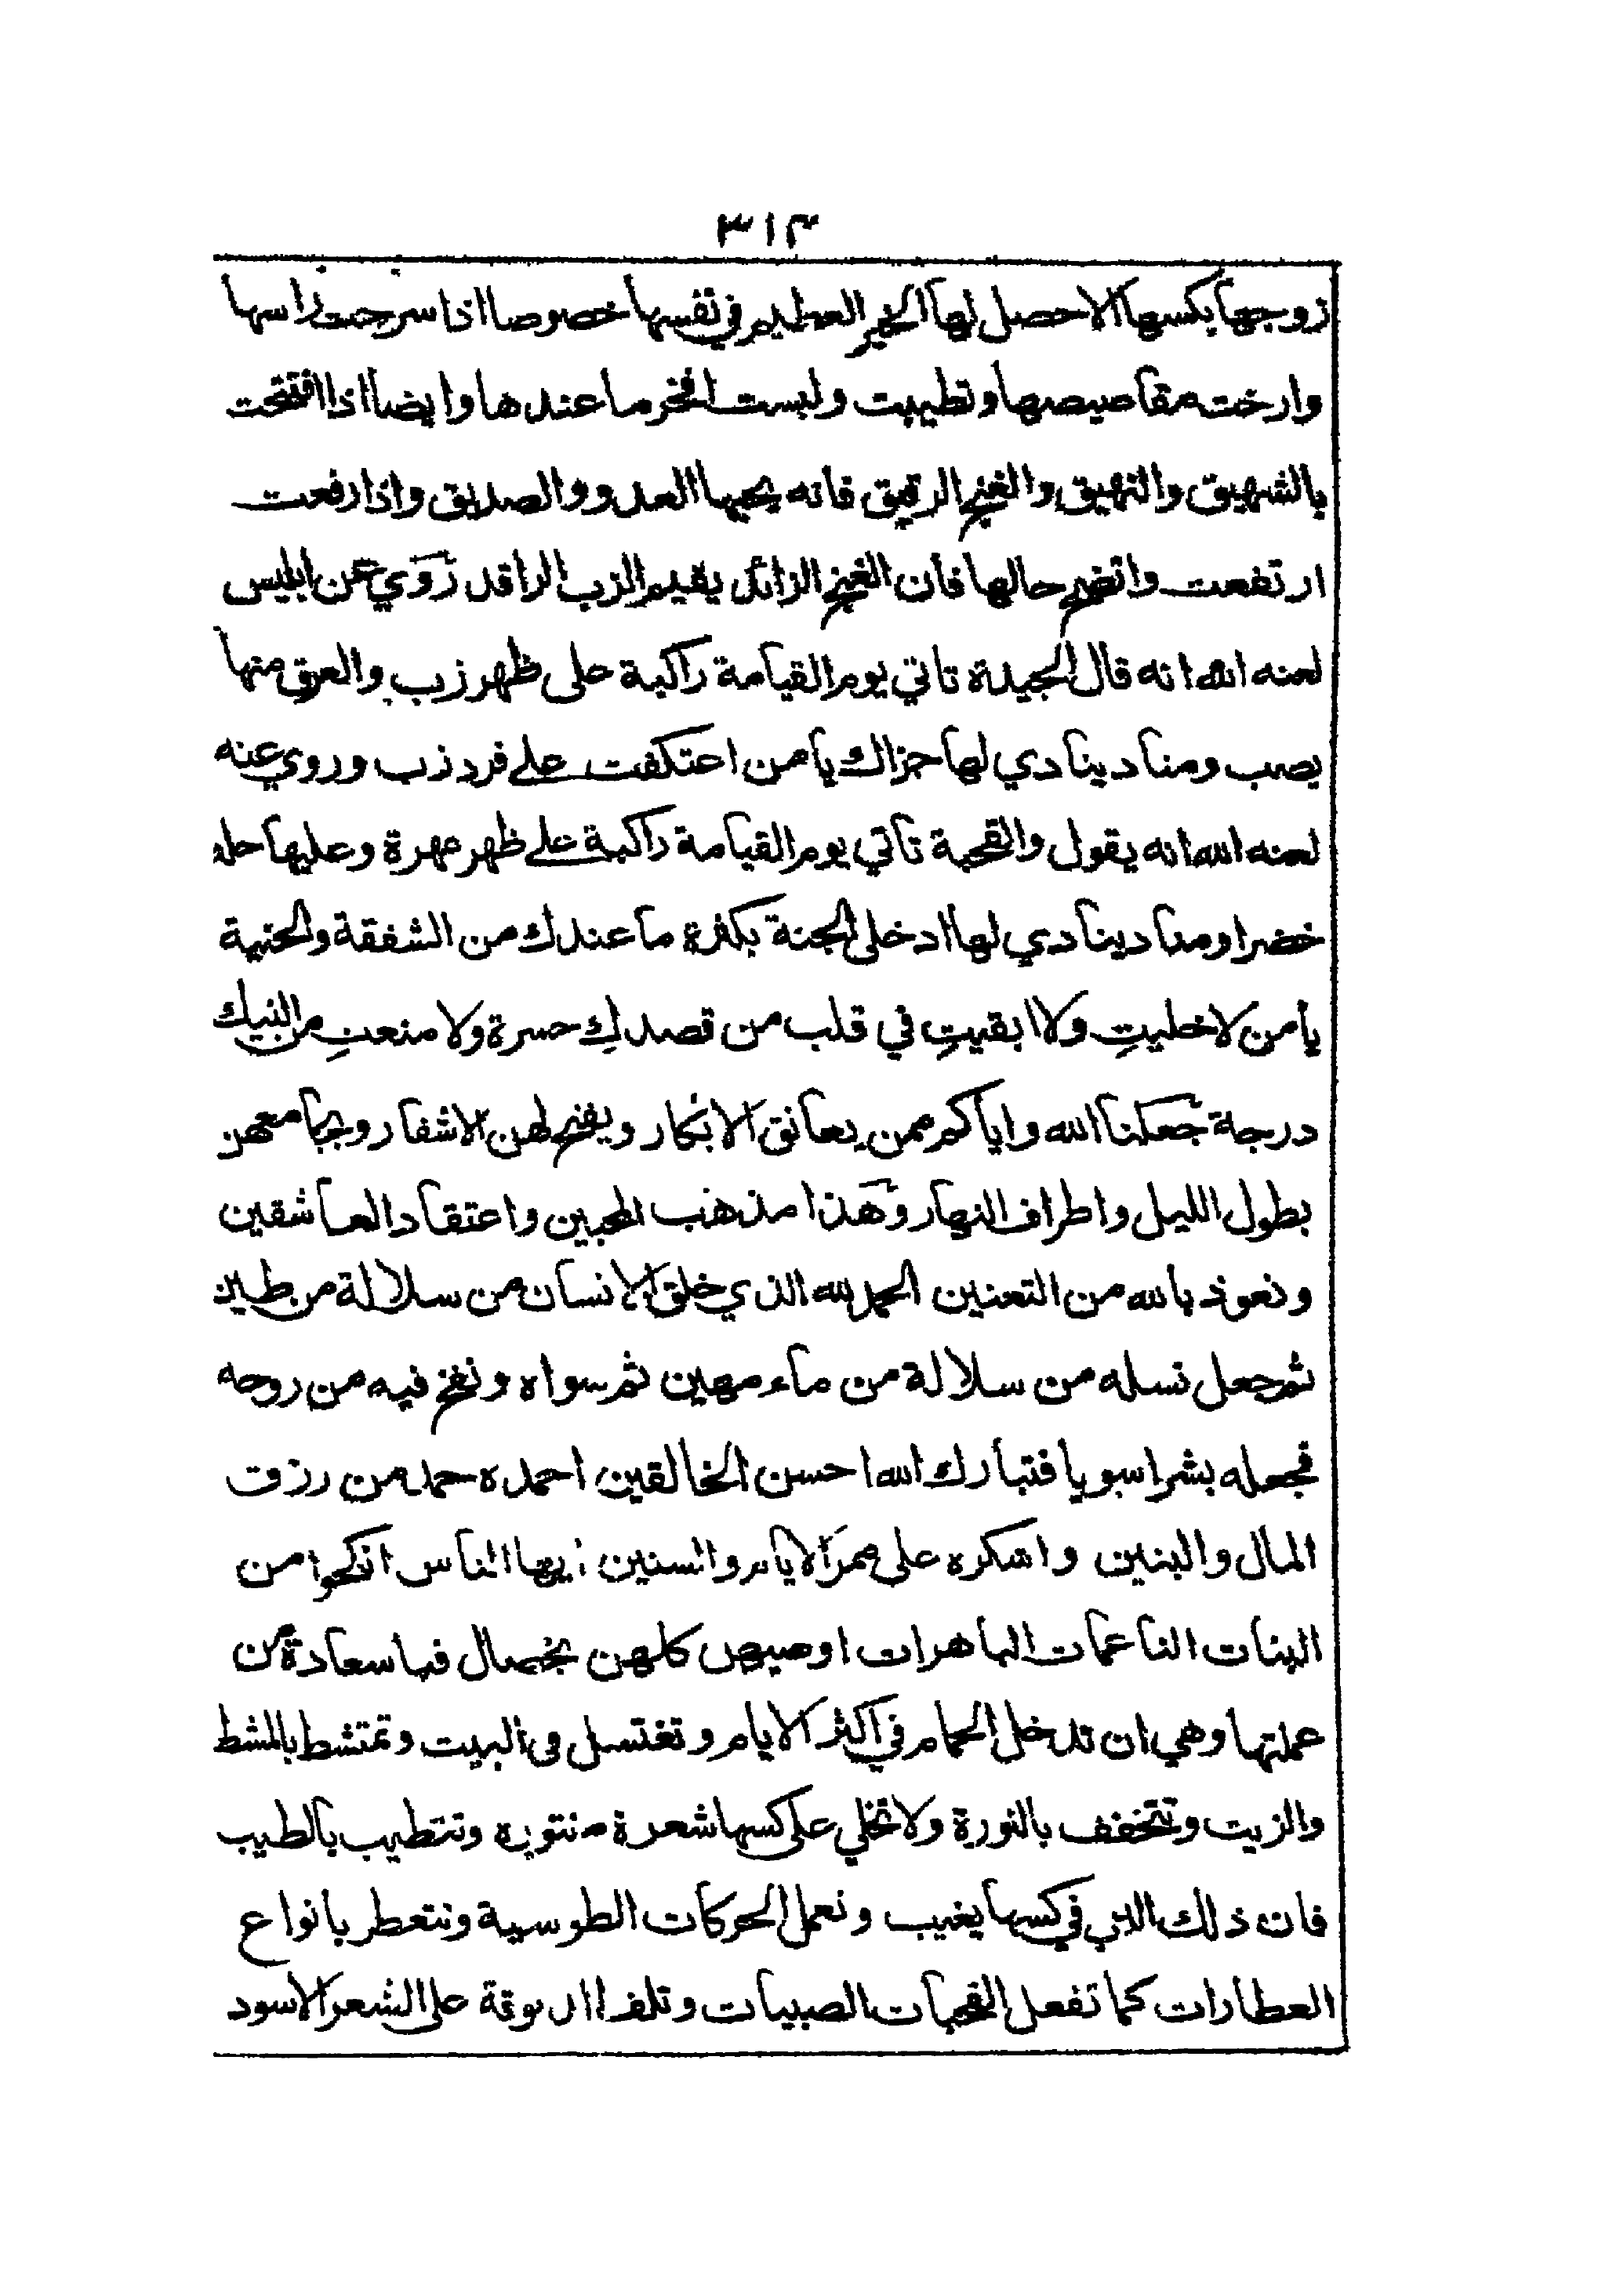 ٣١٣
زوجها بكسها الا حصل لها الخير العظيم في نفسها خصوصا اذا سرحت راسها
وارخت مقاصيصها وتطيبت ولبست افخر ما عندها وايضا اذا افتتحت
بالشهيق والنهيق والغنج الرقيق فانه يحبها العدو والصديق واذا رفعت
ارتفعت واتضح حالها فان الغنج الزائد يقيم الزب الراقد روي عن ابليس
لعنه الله انه قال الجيدة تاتي يوم القيامة راكبة على ظهر زب والعرق منها
يصب ومناد ينادي لها جزاك يا من اعتكفت على فرد زب وروي عنه
لعنه الله انه يقول والقحبة تاتي يوم القيامة راكبة على ظهر مهرة وعليها حله
خضرا ومناد ينادي لها ادخلي الجنة بكثرة ما عندك من الشفقة والحنية
يا من لا خليتِ ولا ابقيتِ في قلب من قصدكِ حسرة ولا منعتِ من النيك
درجة جعلنا الله واياكم ممن يعانق الابكار ويفتح لهن الاشفار ويجامعهن
بطول الليل واطراف النهار وهذا مذهب المحبين واعتقاد العاشقين
ونعوذ بالله من التعنين الحمد لله الذي خلق الانسان من سلالة من طين
ثم جعل نسله من سلالة من ماء مهين ثم سواه ونفخ فيه من روحه
فجعله بشرا سويا فتبارك الله احسن الخالقين احمده حمد من رزق
المال والبنين واشكره على ممر الايام والسنين ايها الناس انكحوا من
البنات الناعمات الماهرات اوصيهن كلهن بخصال فيها سعادة من
عملتها وهي ان تدخل الحمام في اكثر الايام وتغتسل في البيت وتمتشط بالمشط
والزيت وتتخفف بالنورة ولا تخلي على كسها شعرة منتوره وتتطيب بالطيب
فان ذلك الزب في كسها يغيب وتعمل الحركات الطوسية وتتعطر بانواع
العطارات كما تفعل القحبات الصبيات وتلف على الشعر الاسود